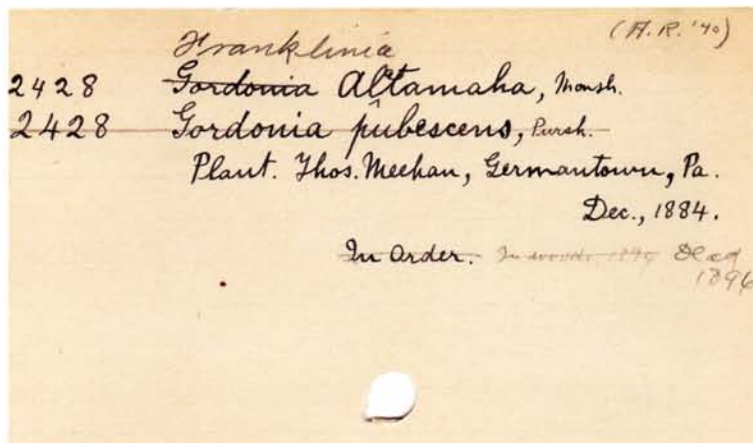 (A.R. '40)
Franklinia
2428 Gordonia Altamaha, Marsh.
2428 Gordonia pubescens, Pursh.
Plant. Thos. Meehan, Germantown, Pa.
Dec., 1884.
In Order. In woods 1890 Dead
1896